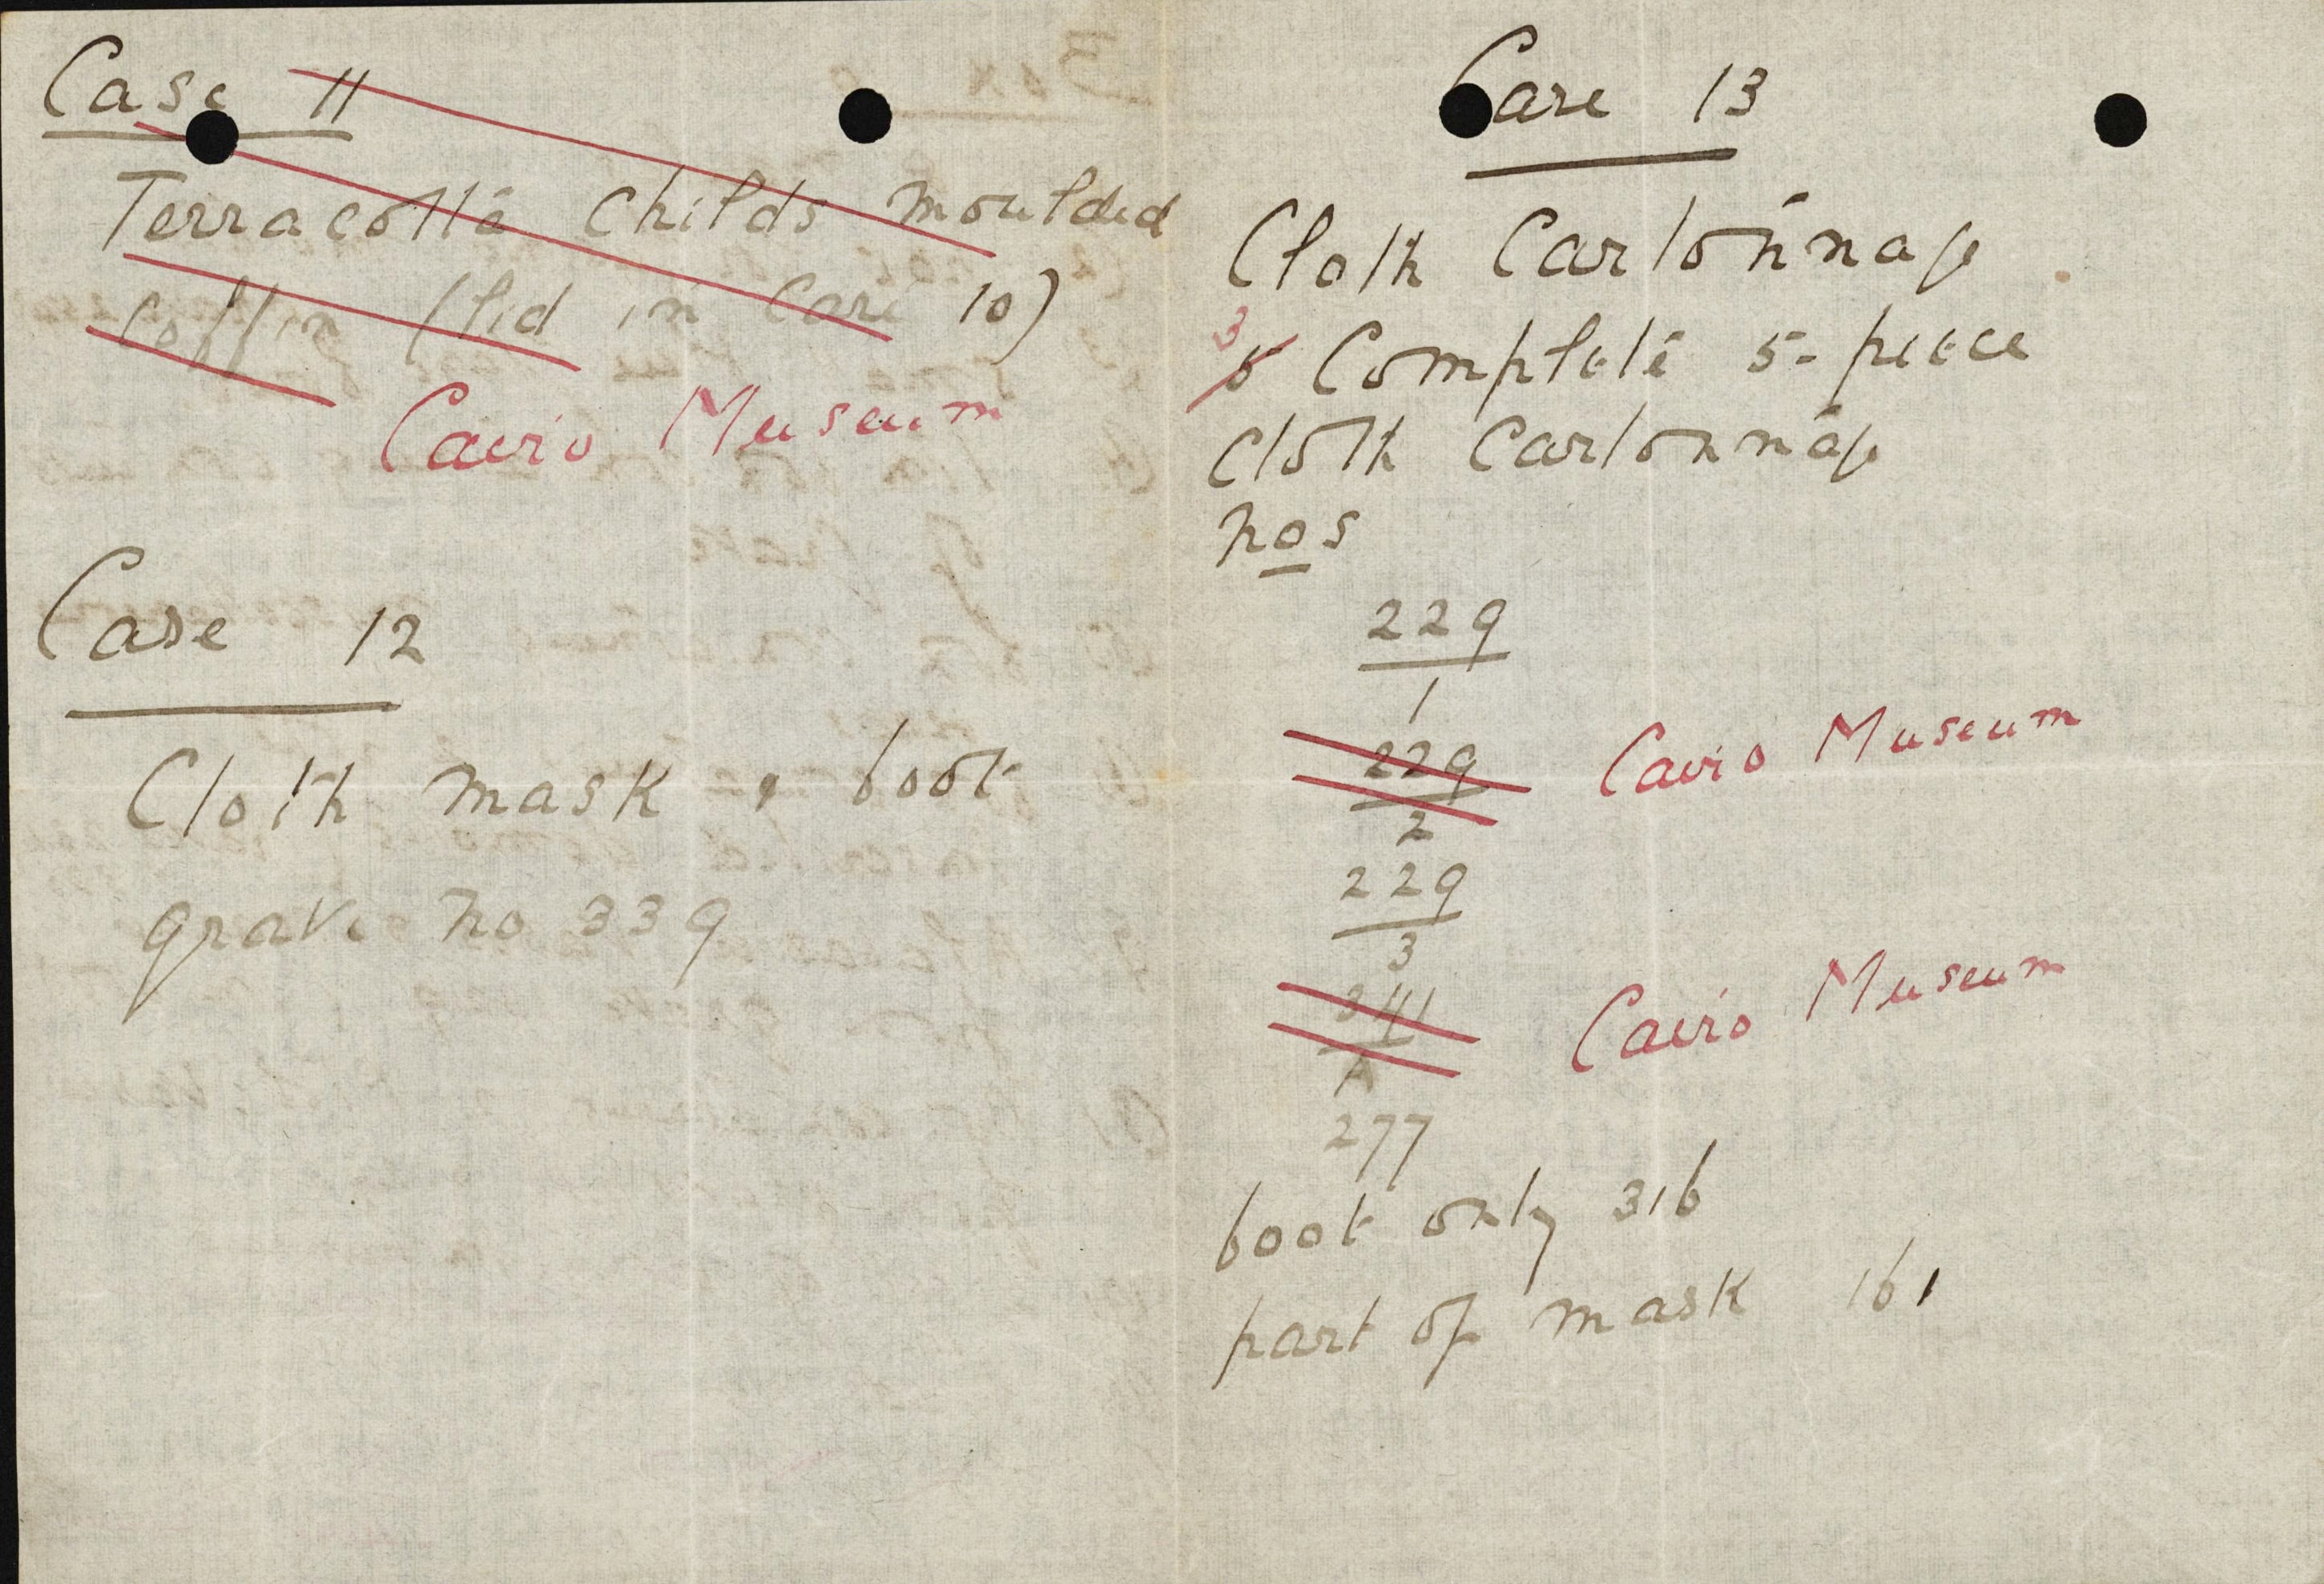 Case 11
Terracotta Childs moulded
coffin (lid in Case 10)
Cairo Museum
Case 12
Cloth mask & foot
grave no 339
Case 13
Cloth Cartonnage
3 5 Complete 5-piece
cloth Cartonnage
nos
229
1
229 Cairo Museum
2
229
3
341 Cairo Museum
A
277
foot only 316
part of mask 161